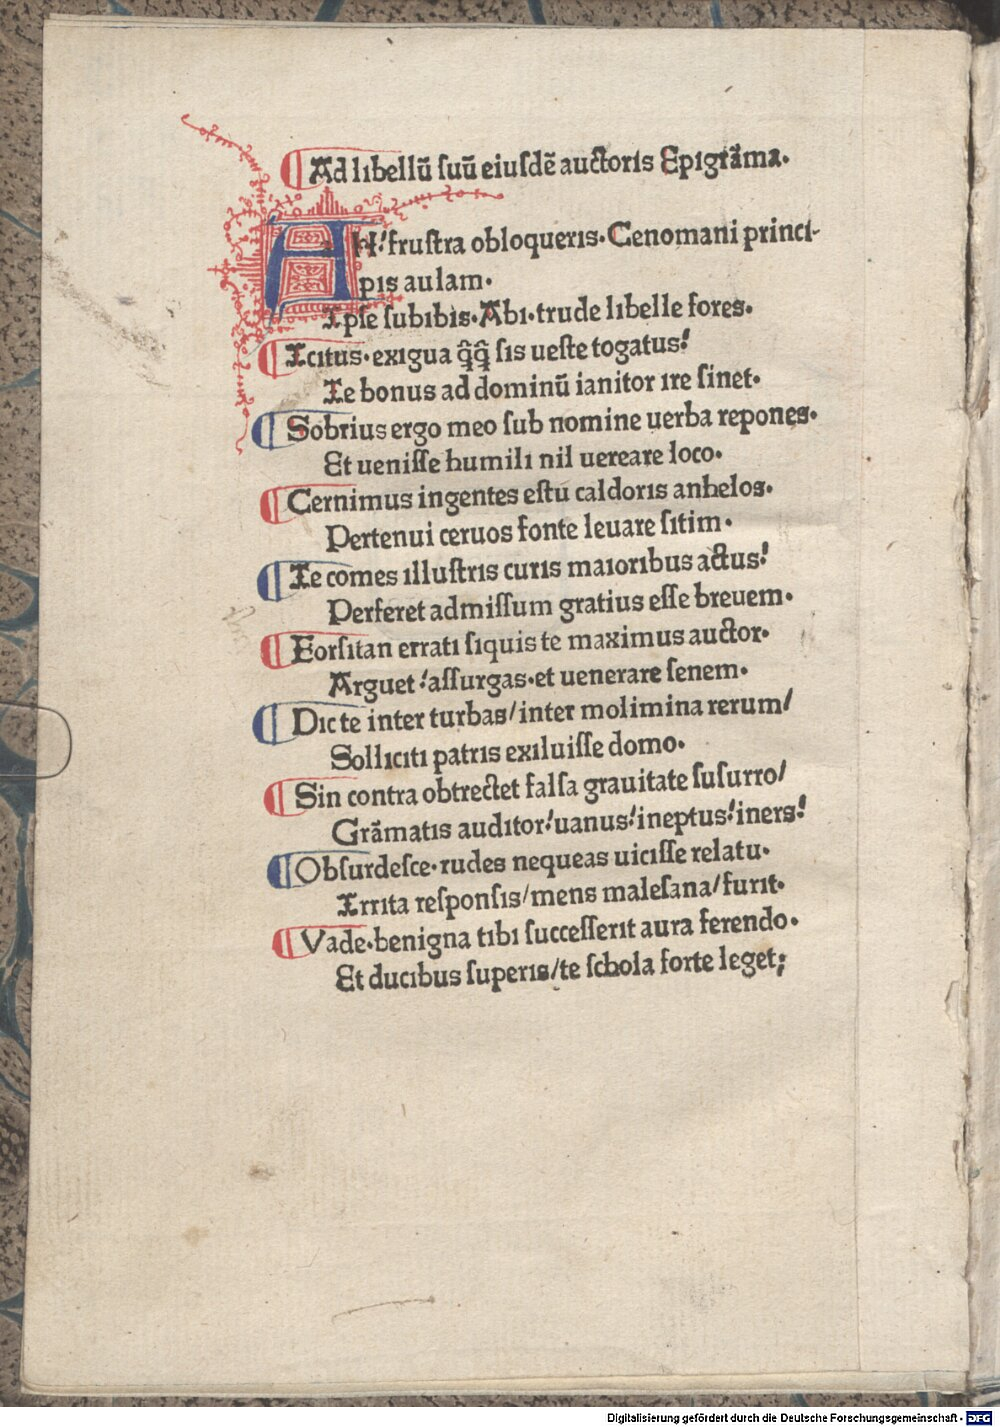 Ad libellū ſuū eiuſdē auctoris Epigrāma.
AH! fruſtra obloqueris. Cenomani princi-
pis aulam.
Ipſe ſubibis. Abi. trude libelle fores.
Icitus. exigua q̄q̄ ſis ueſte togatus!
Te bonus ad dominū ianitor ire ſinet.
Sobrius ergo meo ſub nomine uerba repones.
Et ueniſſe humili nil uereare loco.
Cernimus ingentes eſtu caldoris anhelos.
Pertenui ceruos fonte leuare ſitim.
Te comes illuſtris curis maioribus actus!
Perferet admiſſum gratius eſſe breuem.
Forſitan errati ſiquis te maximus auctor.
Arguet! aſſurgas. et uenerare ſenem.
Dic te inter turbas/ inter molimina rerum/
Solliciti patris exiluiſſe domo.
Sin contra obtrectet falſa grauitate ſuſurro/
Grāmatis auditor! uanus! ineptus! iners!
Obſurdeſce. rudes nequeas uiciſſe relatu.
Irrita reſponſis/ mens maleſana/ furit.
Vade. benigna tibi ſucceſſerit aura ferendo.
Et ducibus ſuperis/ te ſchola forte leget;
Digitalisierung gefördert durch die Deutsche Forschungsgemeinschaft - DFG